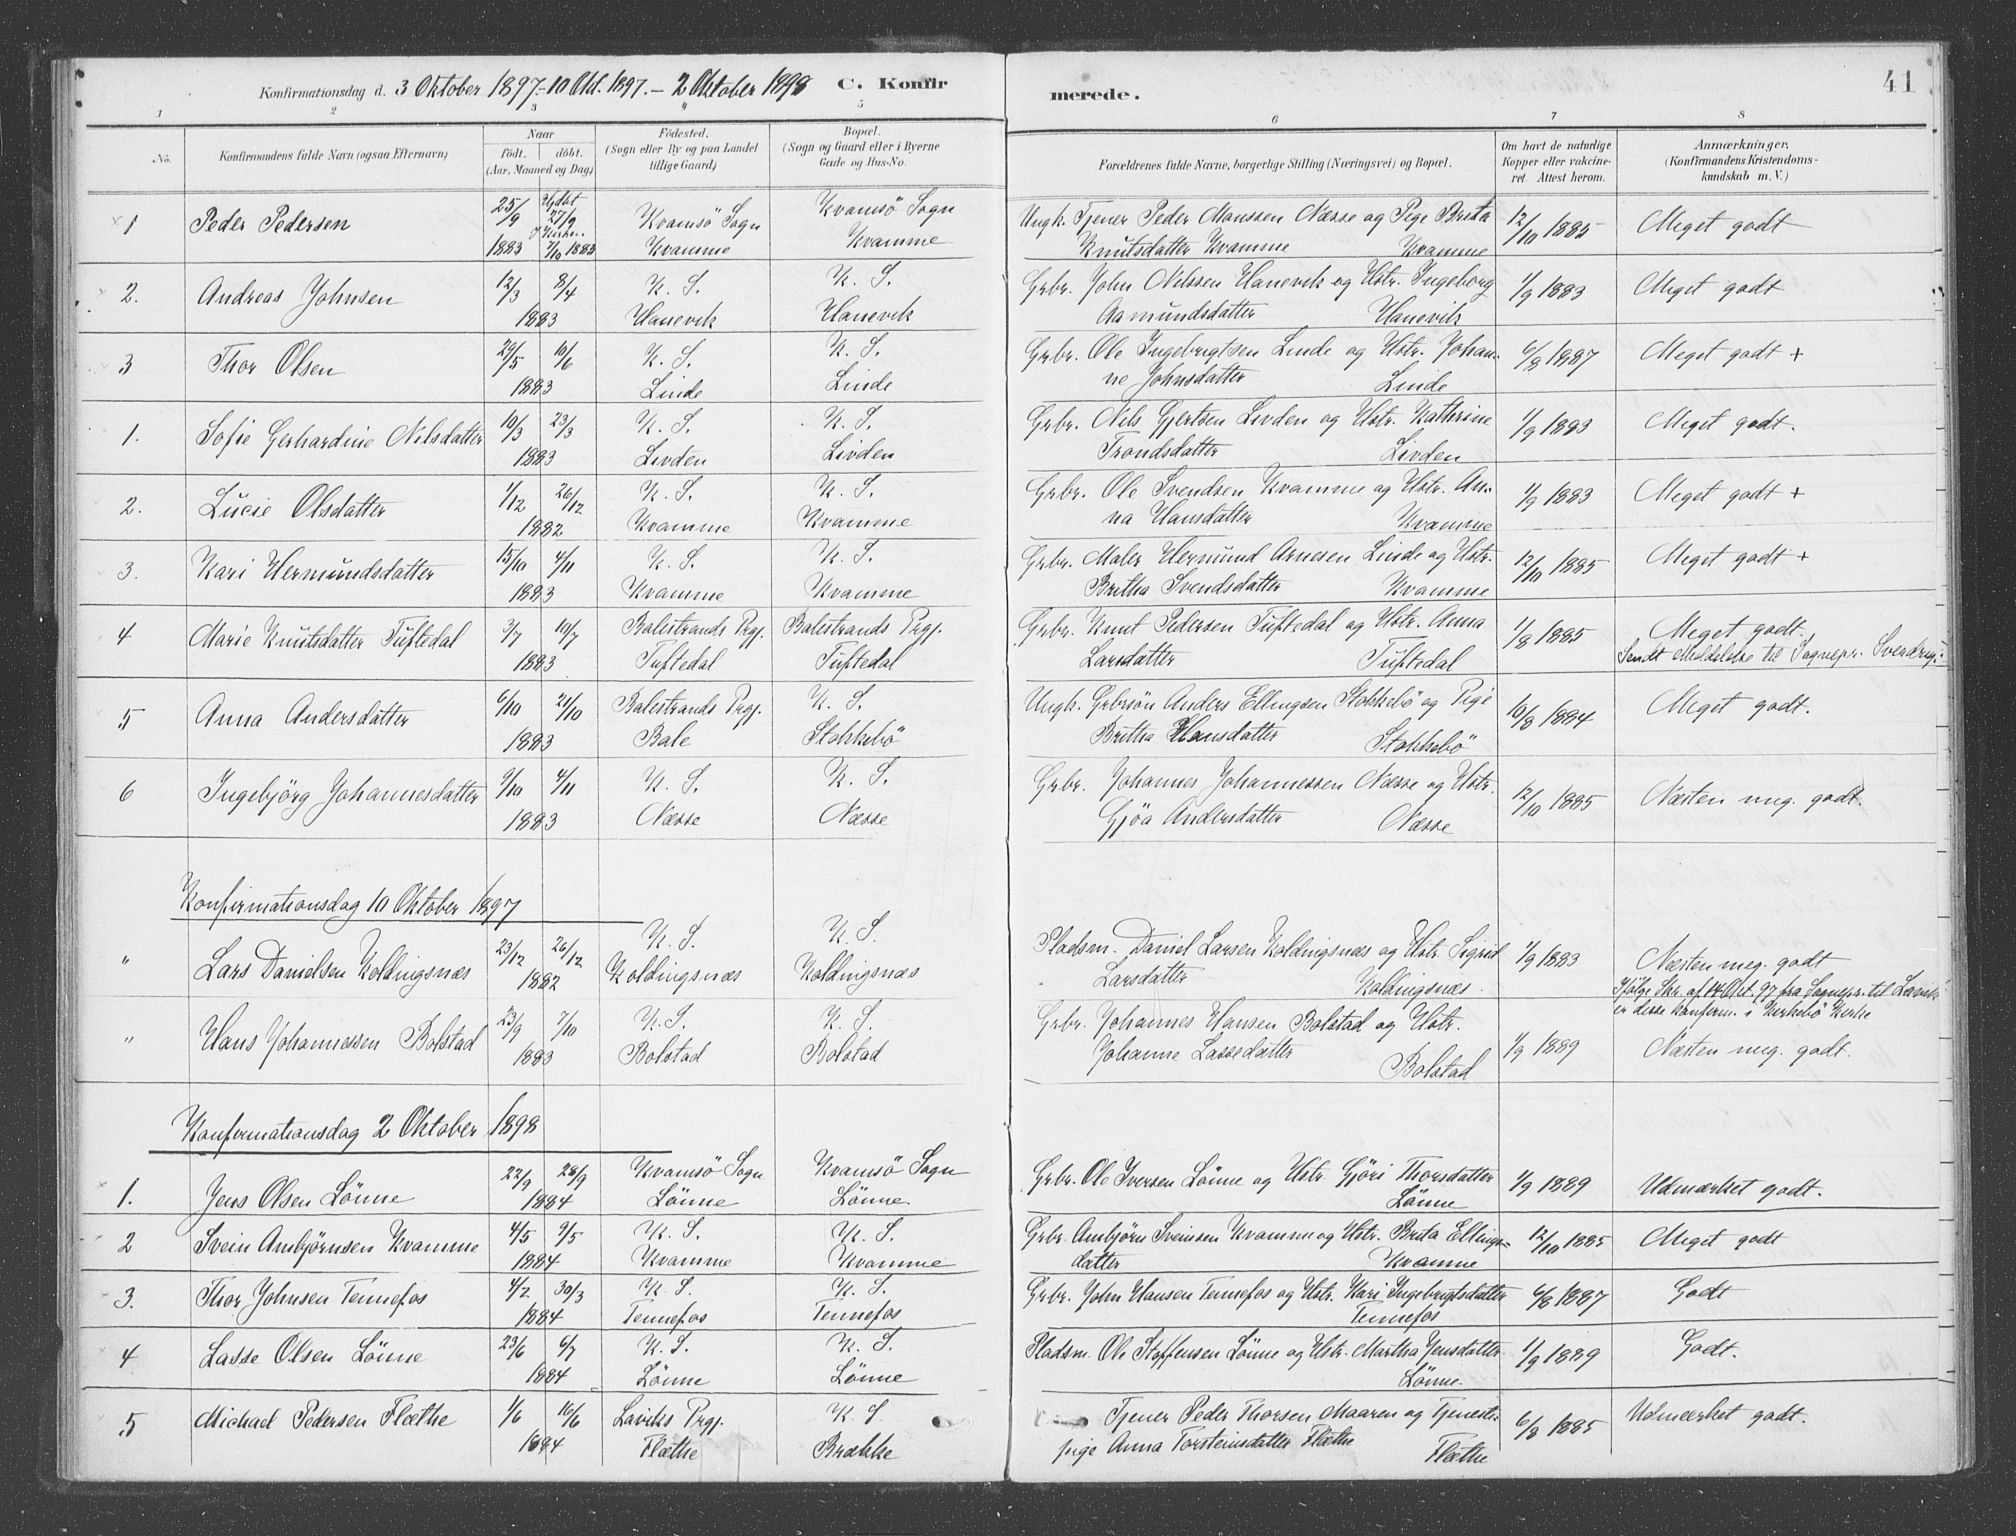 Konfirmationsdag d. 3 Oktober 1897 - 10 Okt. 1897. - 2 Oktober 1898 C. Konfirmerede. 41
1 2 3 4 5 6 7 8
No. Konfirmandens fulde Navn (ogsaa Efternavn) Naar født. døbt. (Aar, Maaned og Dag) Fødested. (Sogn eller By og paa Landet tillige Gaard) Bopæl. (Sogn og Gaard eller i Byerne Gade og Hus-No. Forældrenes fulde Navne, borgerlige Stilling (Næringsvei) og Bopæl. Om havt de naturlige Kopper eller vakcineret. Attest herom. Anmærkninger. (Konfirmandens Kristendomskundskab m. V.)
1 Peder Pedersen 25/9 1883 Hjdbt 27/9 i Kirken 7/10 1883 Kvamsö Sogn Kvamme Kvamsö Sogn Kvamme Ungk. Tjener Peder Monssen Næsse og Pige Brita
Knutsdatter Kvamme Kvamme 12/10 1885 Meget godt
2. Andreas Johnsen 12/3 8/4 1883 K. S. Hanevik K. S. Hanevik Grbr. John Nilssen Hanevik og Hstr. Ingeborg
Aamundsdatter Hanevik 1/9 1883 Meget godt
3 Thor Olsen 29/5 10/6 1883 K. S. Linde K. S. Linde Grbr. Ole Ingebrigtsen Linde og Hstr. Johan-
ne Johnsdatter Linde 6/8 1887 Meget godt +
1. Sofie Gerhardine Nilsdatter 10/3 23/3 1883 K. S. Livden K. S. Livden Grbr. Nils Gjertsen Livden og Hstr. Kathrine
Trondsdatter Livden 1/9 1883 Meget godt.
2. Lucie Olsdatter 1/12 26/12 1882 K. S. Kvamme K. S. Kvamme Grbr. Ole Svendsen Kvamme og Hstr. An-
na Hansdatter Kvamme 1/9 1883 Meget godt +
3. Kari Hermundsdatter 15/10 4/11 1883 K. S. Kvamme K. S. Kvamme Grbr. Maler Hermund Arnesen Linde og Hstr.
Britha Svendsdatter Kvamme 12/10 1885 Meget godt +
4 Marie Knutsdatter Tuftedal 3/7 10/7 1883 Balestrands Prgj. Tuftedal Balestrands Prgj. Tuftedal Grbr. Knut Pedersen Tuftedal og Hstr. Anna
Larsdatter Tuftedal 1/8 1885 Meget godt.
Sendt Meddelelse til Sognepr. Sverdrup
5 Anna Andersdatter 6/10 21/10 1883 Balestrands Prgj. Bale K. S. Stokkebö Ungk. Grbrsön Anders Ellingsen Stokkebö og Pige
Britha Hansdatter Stokkebö 10/8 1884 Meget godt.
6 Ingebjörg Johannesdatter 9/10 4/11 1883 K. S. Næsse K. S. Næsse Grbr. Johannes Johannessen Næsse og Hstr.
Gjöa Andersdatter Næsse 12/10 1885 Næsten meg. godt.
Konfirmationsdag 10 Oktober 1897
" Lars Danielsen Koldingsnæs 23/12 26/12 1882 K. S. Koldingsnæs K. S. Koldingsnæs Pladsm. Daniel Larsen Koldingsnæs og Hstr. Sigrid
Larsdatter Koldingsnæs. 1/9 1883 Næsten meg. godt
Ifölge Skr. af 14 Oct. 97 fra Sognepr. til Lavik
er disse konferm. i Kirkebö Kirke
" Hans Johannessen Bolstad 23/9 7/10 1883 K. S. Bolstad K. S. Bolstad Grbr. Johannes Hansen Bolstad og Hstr.
Johanne Lassedatter Bolstad 1/9 1889 Næsten meg. godt.
Konfirmationsdag 2 Oktober 1898
1. Jens Olsen Lönne 22/9 28/9 1884 Kvamsö Sogn Lönne Kvamsö Sogn Lönne. Grbr. Ole Iversen Lönne og Hstr. Gjöri Thorsdatter
Lönne 1/9 1889 Udmærket godt.
2 Svein Ambjörnsen Kvamme 4/5 9/5 1884 K. S. Kvamme K. S. Kvamme Grbr. Ambjörn Sveinsen Kvamme og Hstr. Brita Ellings-
datter Kvamme 12/10 1885 Meget godt
3. Thor Johnsen Tennefos 4/2 30/3 1884 K. S. Tennefos K. S. Tennefos Grbr. John Hansen Tennefos og Hstr. Kari Ingebrigtsdatter
Tennefos 6/8 1887 Godt
4 Lasse Olsen Lönne 23/6 6/7 1884 K. S. Lönne K. S. Lönne Pladsm. Ole Steffensen Lönne og Hstr. Martha Jensdatter
Lönne. 1/9 1889 Godt.
5 Michael Pedersen Flæthe 1/6 16/6 1884 Laviks Prgj. Flæthe K. S. Brække Tjener Peder Thorsen Maaren og Tjeneste-
pige Anna Torsteinsdatter Flæthe Flæthe 6/8 1885 Udmærket godt.